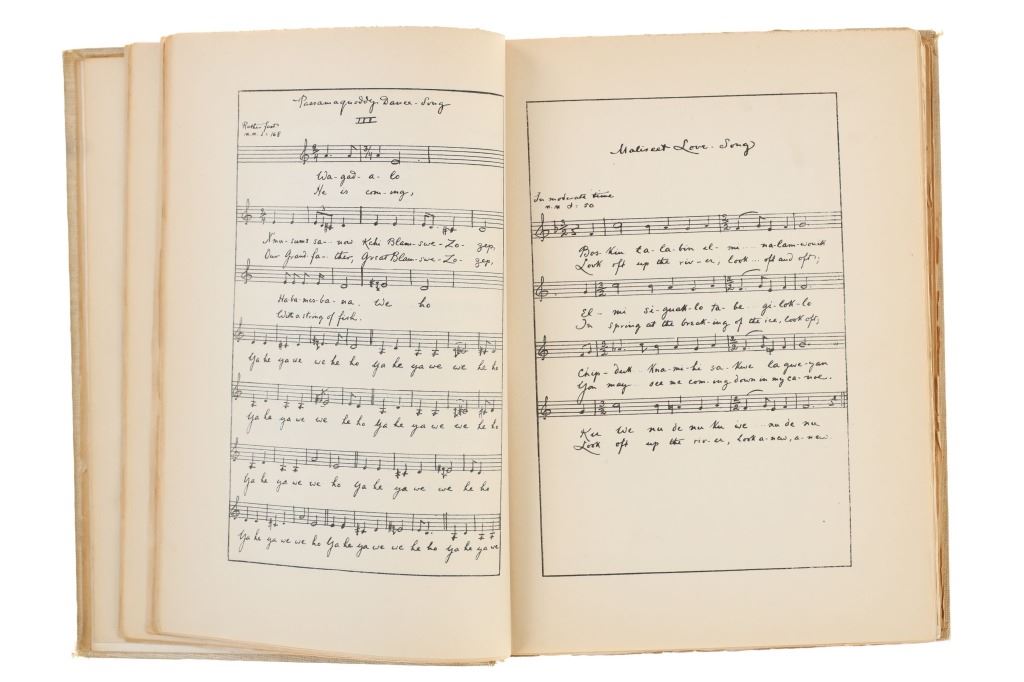 Passamaquoddy Dance-Song
III
Rather fast
m.m. ♩=168
Wa-gad-a-lo
He is com-ing,
N'mu-sums sa-now Kchi Blam-swe-Zo-zep,
Our Grand-fa-ther, Great Blam-swe-Zo-zep,
Haba-mes-ba-na. We ho
With a string of fish.
Ya he ya we we he ho Ya he ya we we he ho
Ya he ya we we he ho Ya he ya we we he ho
Ya he ya we we ho Ya he ya we we he ho
Ya he ya we we ho Ya he ya we we he ho Ya he ya we
Maliseet Love-Song
In moderate time
m.m. = 50
Bos-Kiu ta-la-bin el-mi-na-lam-wouik
Look oft up the riv-er, look oft and oft;
El-mi si-guak-lo ta-be gi-lok-lo
In spring at the break-ing of the ice, look oft;
Chip-duk Kna-mi-hi sa-Kwe la gwe-yan
You may see me com-ing down in my ca-noe.
Kee We nu de nu Ku we nu de nu
Look oft up the riv-er, look a-new, a-new